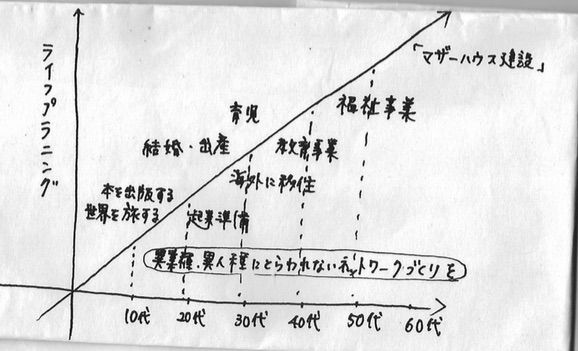 ライフプラニング
「マザーハウス建設」
福祉事業
育児
教育事業
結婚・出産
海外に移住
本を出版する
世界を旅する
起業準備
異業種、異人種にとらわれないネットワークづくりを
10代
20代
30代
40代
50代
60代